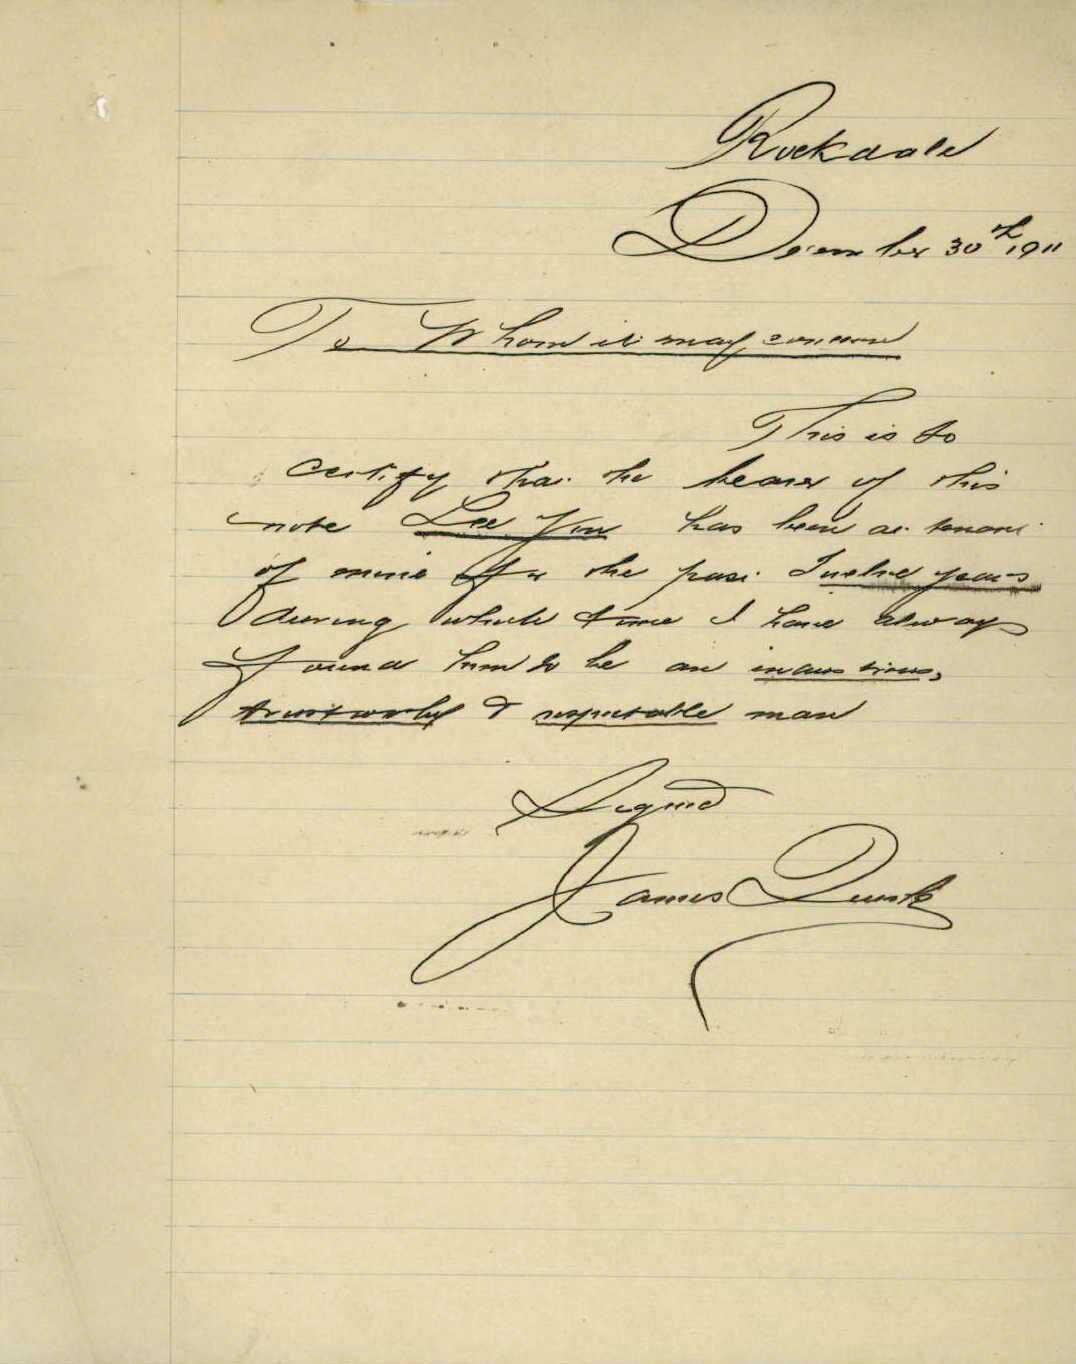 Rockdale
December 30th, 1911
To Whom it may concern
This is to
certify that the bearer of this
note Lee You has been a tenant
of mine for the past Twelve years
during which time I have always
found him to be an industrious,
trustworthy & respectable man
Signed
James